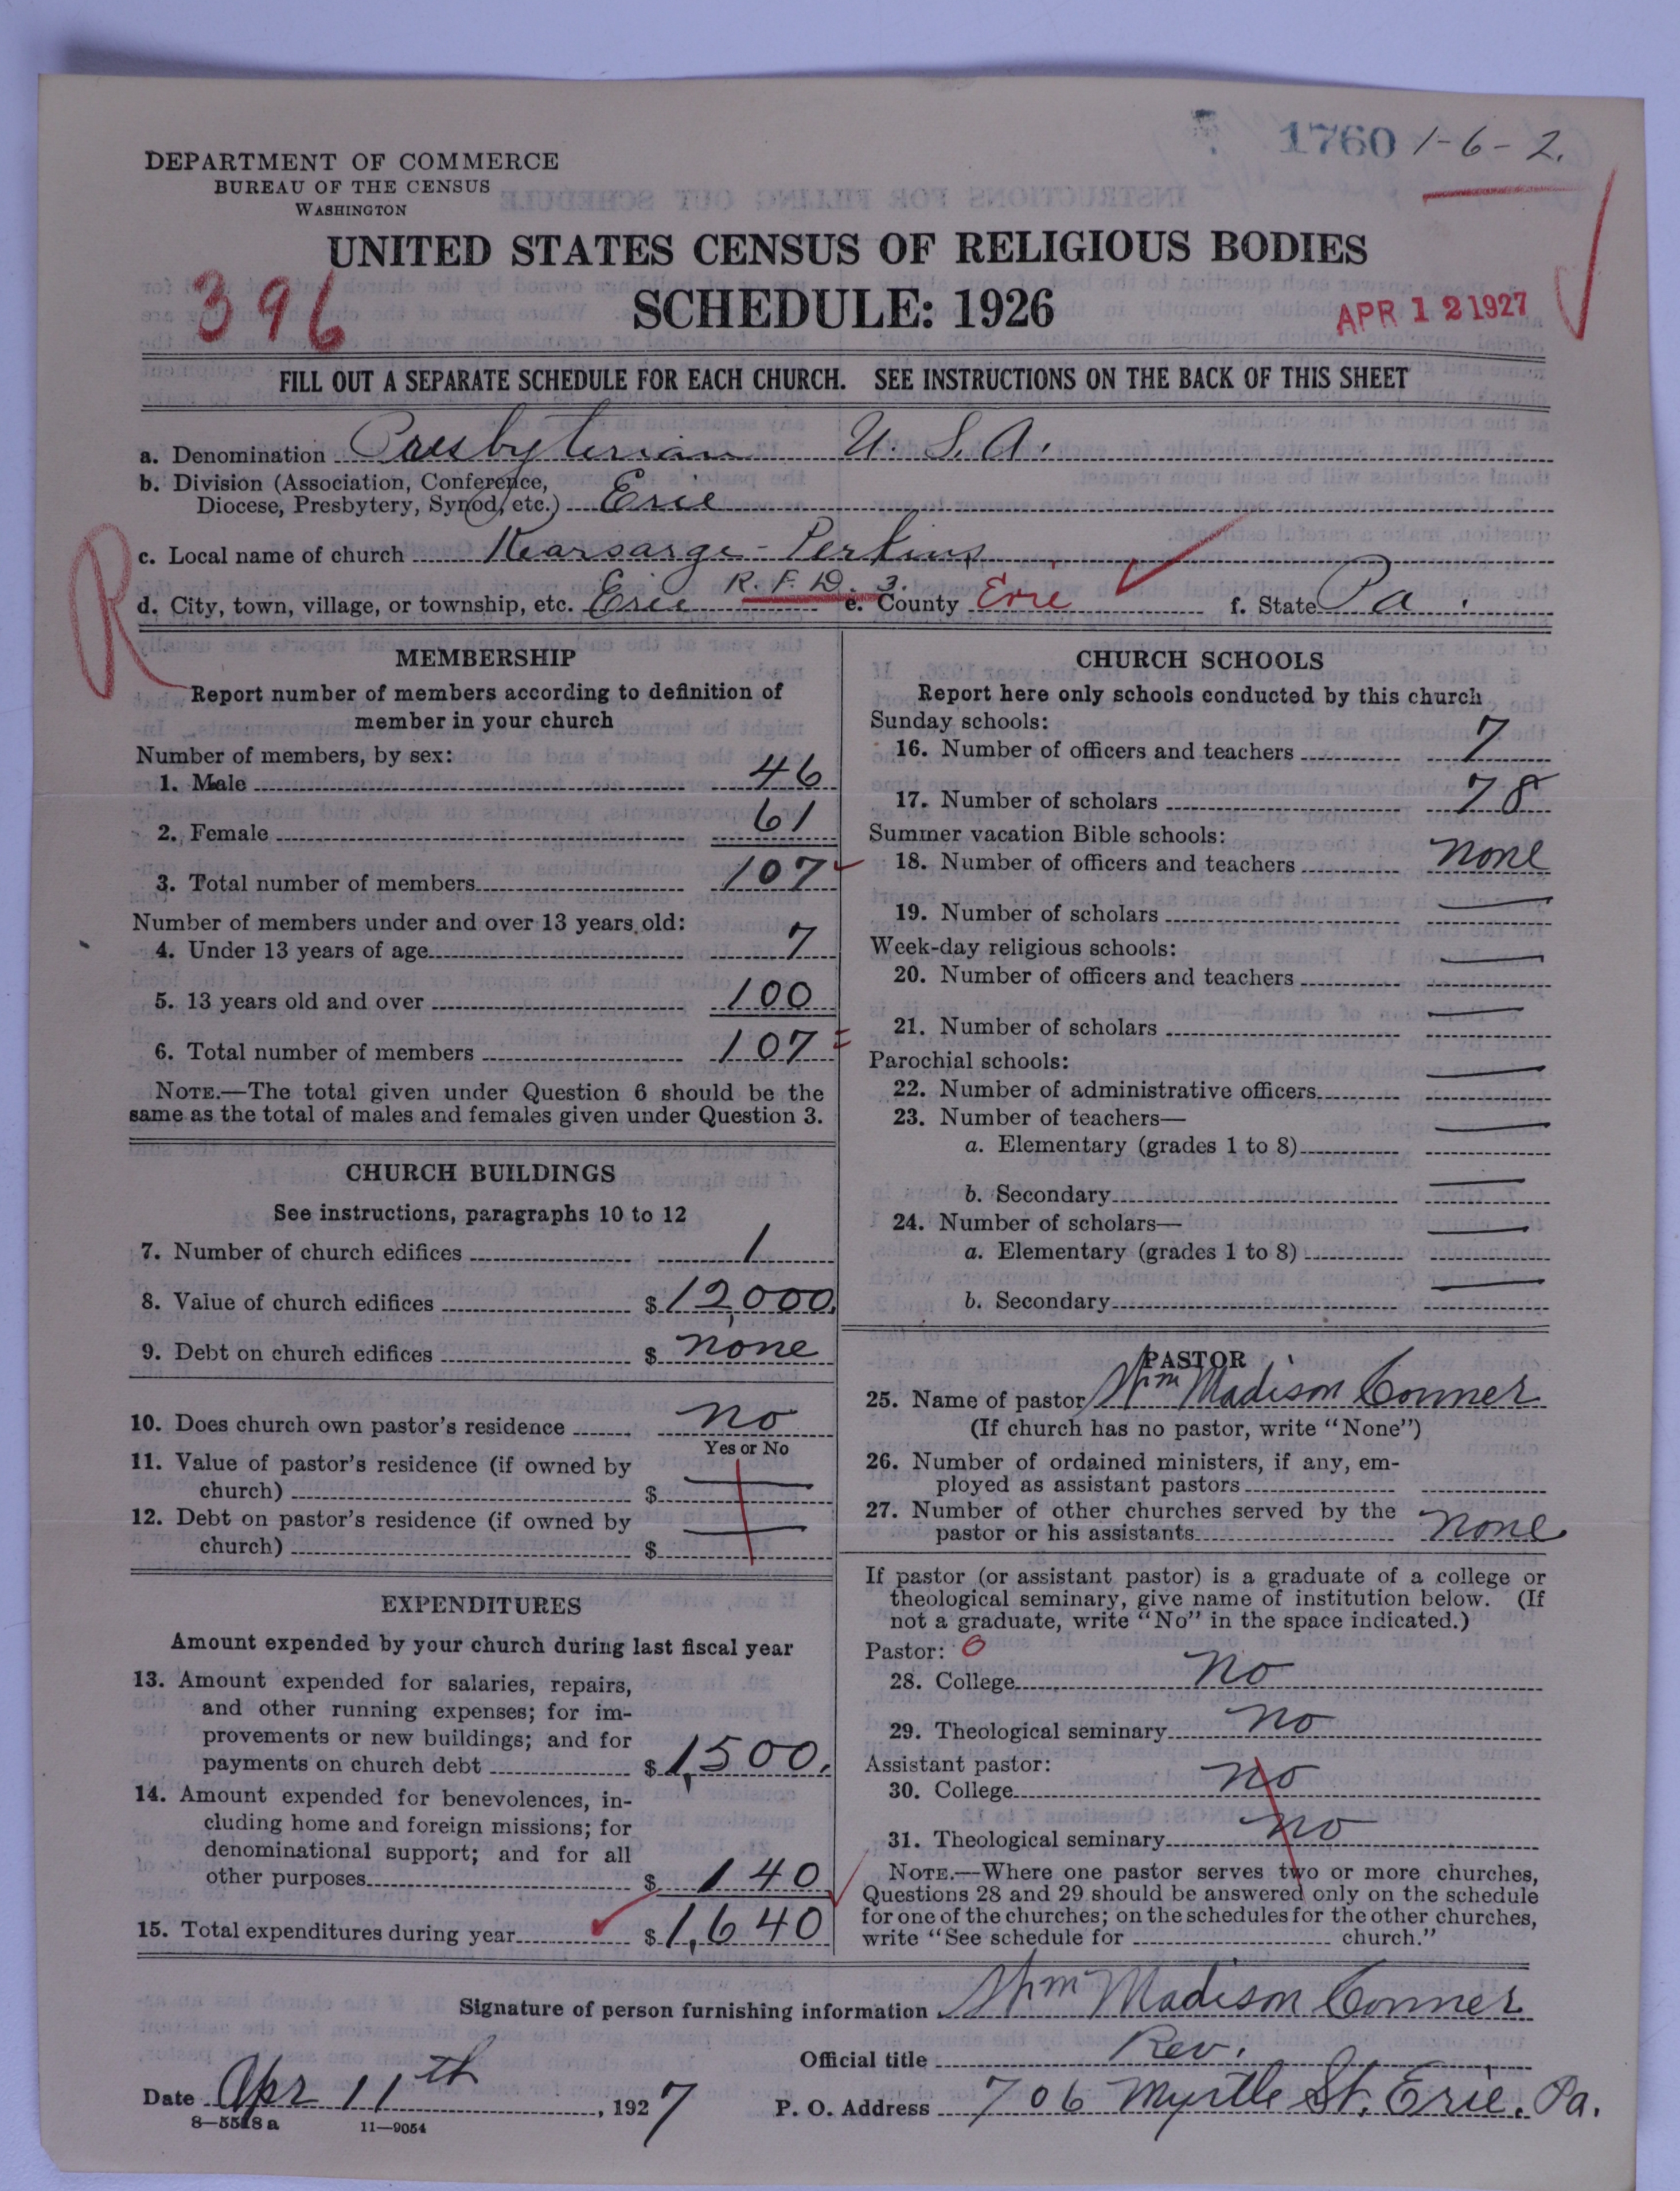 1760 1-6-2.
DEPARTMENT OF COMMERCE
BUREAU OF THE CENSUS
WASHINGTON
UNITED STATES CENSUS OF RELIGIOUS BODIES
396
SCHEDULE: 1926
APR 12 1927
FILL OUT A SEPARATE SCHEDULE FOR EACH CHURCH. SEE INSTRUCTIONS ON THE BACK OF THIS SHEET
a. Denomination Presbyterian U. S. A.
b. Division (Association, Conference,
Diocese, Presbytery, Synod, etc.) Erie
R
c. Local name of church Kearsarge-Perkins
d. City, town, village, or township, etc. Erie R. F. D. 3. e. County Erie f. State Pa.
MEMBERSHIP
Report number of members according to definition of
member in your church
Number of members, by sex:
1. Male 46
2. Female 61
3. Total number of members 107
Number of members under and over 13 years old:
4. Under 13 years of age 7
5. 13 years old and over 100
6. Total number of members 107
NOTE.—The total given under Question 6 should be the
same as the total of males and females given under Question 3.
CHURCH BUILDINGS
See instructions, paragraphs 10 to 12
7. Number of church edifices 1
8. Value of church edifices $12,000.
9. Debt on church edifices $ none
10. Does church own pastor's residence no
Yes or No
11. Value of pastor's residence (if owned by
church) $ —
12. Debt on pastor's residence (if owned by
church) $ —
EXPENDITURES
Amount expended by your church during last fiscal year
13. Amount expended for salaries, repairs,
and other running expenses; for im-
provements or new buildings; and for
payments on church debt $1,500.
14. Amount expended for benevolences, in-
cluding home and foreign missions; for
denominational support; and for all
other purposes $ 140
15. Total expenditures during year $1,640
CHURCH SCHOOLS
Report here only schools conducted by this church
Sunday schools:
16. Number of officers and teachers 7
17. Number of scholars 78
Summer vacation Bible schools:
18. Number of officers and teachers none
19. Number of scholars —
Week-day religious schools:
20. Number of officers and teachers —
21. Number of scholars —
Parochial schools:
22. Number of administrative officers —
23. Number of teachers—
a. Elementary (grades 1 to 8) —
b. Secondary —
24. Number of scholars—
a. Elementary (grades 1 to 8) —
b. Secondary —
PASTOR
25. Name of pastor Wm Madison Conner
(If church has no pastor, write "None")
26. Number of ordained ministers, if any, em-
ployed as assistant pastors
27. Number of other churches served by the
pastor or his assistants none
If pastor (or assistant pastor) is a graduate of a college or
theological seminary, give name of institution below. (If
not a graduate, write "No" in the space indicated.)
Pastor: 0
28. College no
29. Theological seminary no
Assistant pastor:
30. College no
31. Theological seminary no
NOTE.—Where one pastor serves two or more churches,
Questions 28 and 29 should be answered only on the schedule
for one of the churches; on the schedules for the other churches,
write "See schedule for church."
Signature of person furnishing information Wm Madison Conner
Official title Rev.
Date Apr 11th, 1927 P. O. Address 706 Myrtle St. Erie. Pa.
8—5518 a 11—9054